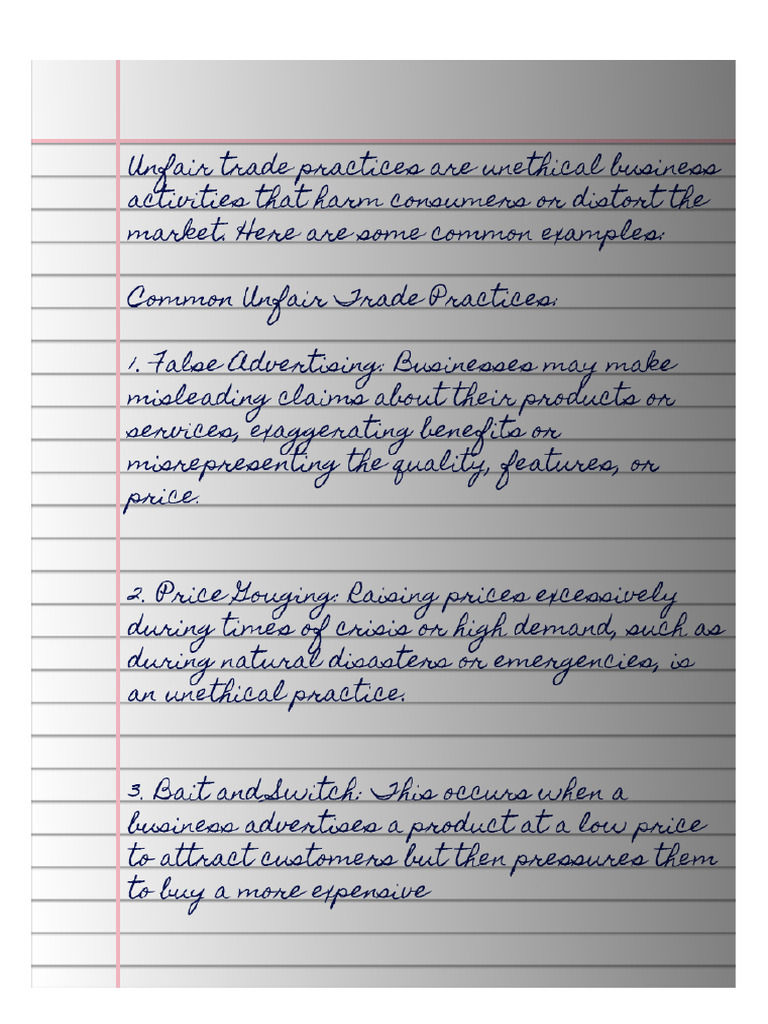 Unfair trade practices are unethical business
activities that harm consumers or distort the
market. Here are some common examples:
Common Unfair Trade Practices:
1. False Advertising: Businesses may make
misleading claims about their products or
services, exaggerating benefits or
misrepresenting the quality, features, or
price.
2. Price Gouging: Raising prices excessively
during times of crisis or high demand, such as
during natural disasters or emergencies, is
an unethical practice.
3. Bait and Switch: This occurs when a
business advertises a product at a low price
to attract customers but then pressures them
to buy a more expensive